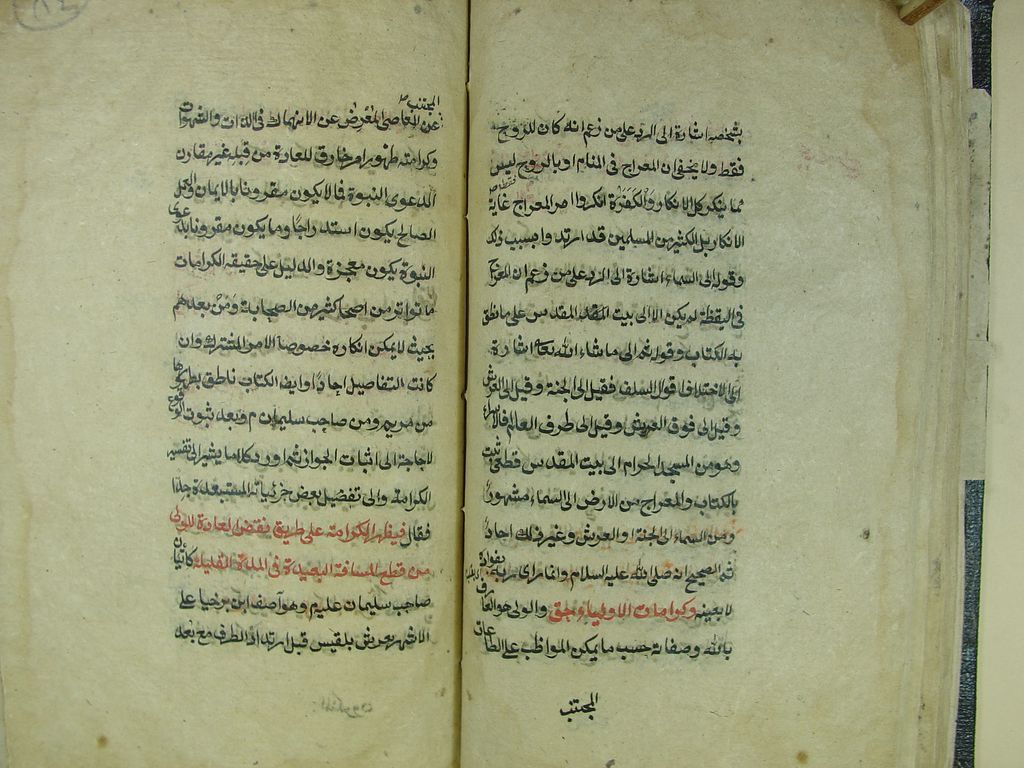 بشخصه اشارة الى الرد على من زعم انه كان للروح
فقط ولا يخفى ان المعراج فى المنام او بالروح ليس
مما ينكر كل الانكار والكفرة انكروا امر المعراج غاية
الانكار بل الكثير من المسلمين قد ارتدوا بسبب ذلك
وقوله الى السماء اشارة الى الرد على من زعم ان المعراج
فى اليقظة لم يكن الا الى بيت المقدس على ما نطق
به الكتاب وقوله ثم الى ما شاء الله تعا اشارة
الى اختلاف اقوال السلف فقيل الى الجنة وقيل الى العرش
وقيل الى فوق العرش وقيل الى طرف العالم فالاسراء
وهو من المسجد الحرام الى بيت المقدس قطعى ثبت
بالكتاب والمعراج من الارض الى السماء مشهور
ومن السماء الى الجنة او العرش وغير ذلك احاد
ثم الصحيح انه صلى الله عليه السلام وانما راى ربه بفواده
لا بعينه وكرامات الاولياء حق والولى هو العارف
بالله وصفاته حسب ما يمكن المواظب على الطاعات
المجتنب
المجتنب
عن المعاصى المعرض عن الانهماك فى اللذات والشهوات
وكرامته ظهور امر خارق للعادة من قبله غير مقارن
الدعوى النبوة فما لا يكون مقرونا بالايمان والعمل
الصالح يكون استدراجا وما يكون مقرونا بدعوى
النبوة يكون معجزة والدليل على حقيقة الكرامات
ما تواتر من كثير من الصحابة ومن بعدهم
بحيث لا يمكن انكاره خصوصا الامر المشترك وان
كانت التفاصيل احادا وايض الكتاب ناطق بظهورها
من مريم ومن صاحب سليمان م فبعد ثبوت الوقوع
لا حاجة الى اثبات الجواز ثم اورد كلاما يشير الى تفسير
الكرامة والى تفضيل بعض جزئياته المستبعدة جدا
فقال فيظهر الكرامة على طريق نقض العادة للولى
من قطع المسافة البعيدة فى المدة القليلة كاتيان
صاحب سليمان عليم وهو آصف ابن برخيا على
الاشهر بعرش بلقيس قبل ارتداد الطرف مع بعد